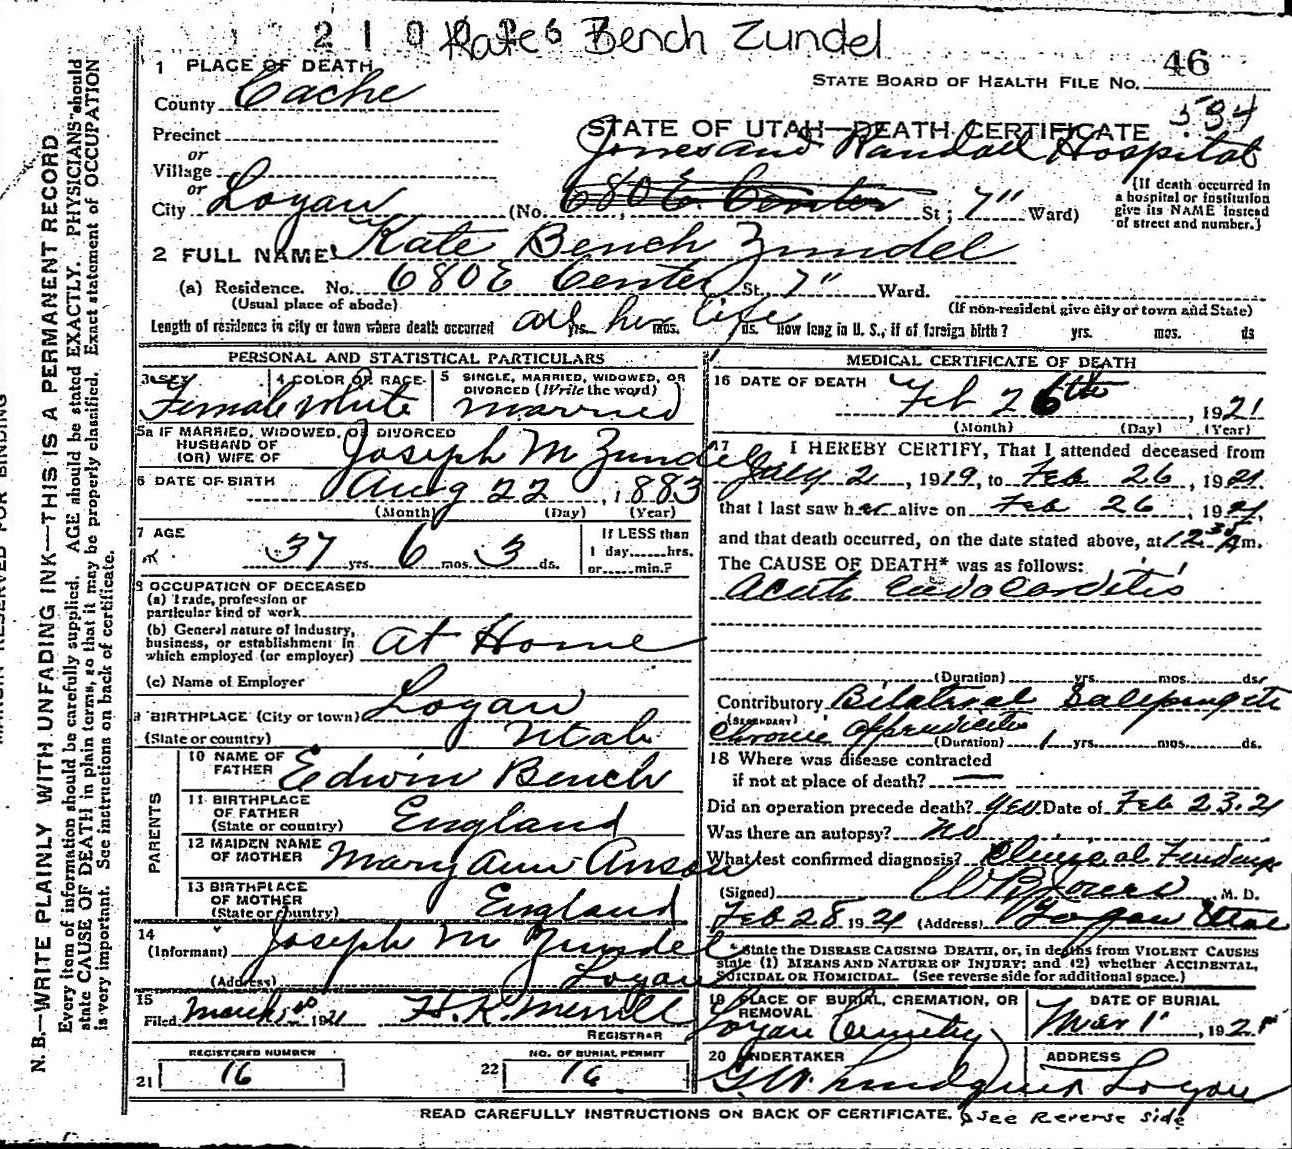 2 1 0 6 Kate Bench Zundel
46
1 PLACE OF DEATH
STATE BOARD OF HEALTH FILE NO.
County Cache
534
STATE OF UTAH—DEATH CERTIFICATE
Precinct
or
Jones and Randall Hospital
Village
or
City Logan (No. 680 E. Center St; 7" Ward)
{If death occurred in
a hospital or institution
give its NAME instead
of street and number.}
2 FULL NAME Kate Bench Zundel
(a) Residence. No. 680 E Center St. 7" Ward.
(Usual place of abode) (If non-resident give city or town and State)
Length of residence in city or town where death occurred all her life yrs. mos. ds. How long in U. S., if of foreign birth? yrs. mos. ds
PERSONAL AND STATISTICAL PARTICULARS
3 SEX 4 COLOR OR RACE 5 SINGLE, MARRIED, WIDOWED, OR
DIVORCED (Write the word)
Female White married
5a IF MARRIED, WIDOWED, OR DIVORCED
HUSBAND OF
(OR) WIFE OF Joseph M Zundel
6 DATE OF BIRTH Aug 22, 1883
(Month) (Day) (Year)
7 AGE If LESS than
37 yrs. 6 mos. 3 ds. 1 day......hrs.
or......min.?
9 OCCUPATION OF DECEASED
(a) Trade, profession or
particular kind of work
(b) General nature of industry,
business, or establishment in
which employed (or employer) at Home
(c) Name of Employer
9 BIRTHPLACE (City or town) Logan
(State or country) Utah
PARENTS
10 NAME OF
FATHER Edwin Bench
11 BIRTHPLACE
OF FATHER
(State or country) England
12 MAIDEN NAME
OF MOTHER Mary Ann Anson
13 BIRTHPLACE
OF MOTHER
(State or country) England
14
(Informant) Joseph M Zundel
(Address) Logan
15
Filed March 1921 H. K. Merrill
REGISTRAR
REGISTERED NUMBER NO. OF BURIAL PERMIT
21 16 22 16
MEDICAL CERTIFICATE OF DEATH
16 DATE OF DEATH Feb 26th, 1921
(Month) (Day) (Year)
17 I HEREBY CERTIFY, That I attended deceased from
July 2, 1919, to Feb 26, 1921
that I last saw her alive on Feb 26, 1921,
and that death occurred, on the date stated above, at 12:30 A m.
The CAUSE OF DEATH* was as follows:
acute Endocarditis
(Duration) yrs. mos. ds.
Contributory Bilateral Salpingitis
(SECONDARY)
Chronic appendicitis (Duration) 1 yrs. mos. ds.
18 Where was disease contracted
if not at place of death? —
Did an operation precede death? yes Date of Feb 23. 21
Was there an autopsy? no
What test confirmed diagnosis? Clinical Findings
(Signed) M. D.
Feb 28 1921 (Address) Logan Utah
* State the DISEASE CAUSING DEATH, or, in deaths from VIOLENT CAUSES
state (1) MEANS AND NATURE OF INJURY; and (2) whether ACCIDENTAL,
SUICIDAL OR HOMICIDAL. (See reverse side for additional space.)
19 PLACE OF BURIAL, CREMATION, OR
REMOVAL
Logan Cemetery
DATE OF BURIAL
Mar 1, 1921
20 UNDERTAKER ADDRESS
G. W. Lindquist Logan
READ CAREFULLY INSTRUCTIONS ON BACK OF CERTIFICATE. See Reverse side
MARGIN RESERVED FOR BINDING
N. B.—WRITE PLAINLY WITH UNFADING INK—THIS IS A PERMANENT RECORD
Every item of information should be carefully supplied. AGE should be stated EXACTLY. PHYSICIANS should
state CAUSE OF DEATH in plain terms, so that it may be properly classified. Exact statement of OCCUPATION
is very important. See instructions on back of certificate.